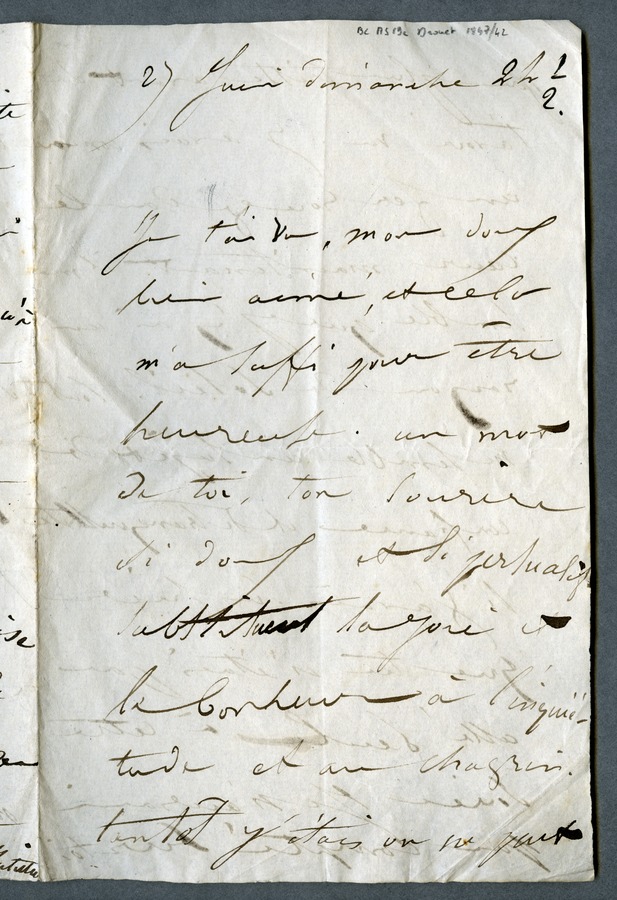 27 Juin dimanche 2h 1/2.
Je t'ai vu, mon doux
bien aimé, et cela
m'a suffi pour être
heureuse. un mot
de toi, ton sourire
si doux et si persuasif
substituent la joie et
le bonheur à l'inquié-
tude et au chagrin.
tantôt j'étais on ne peut